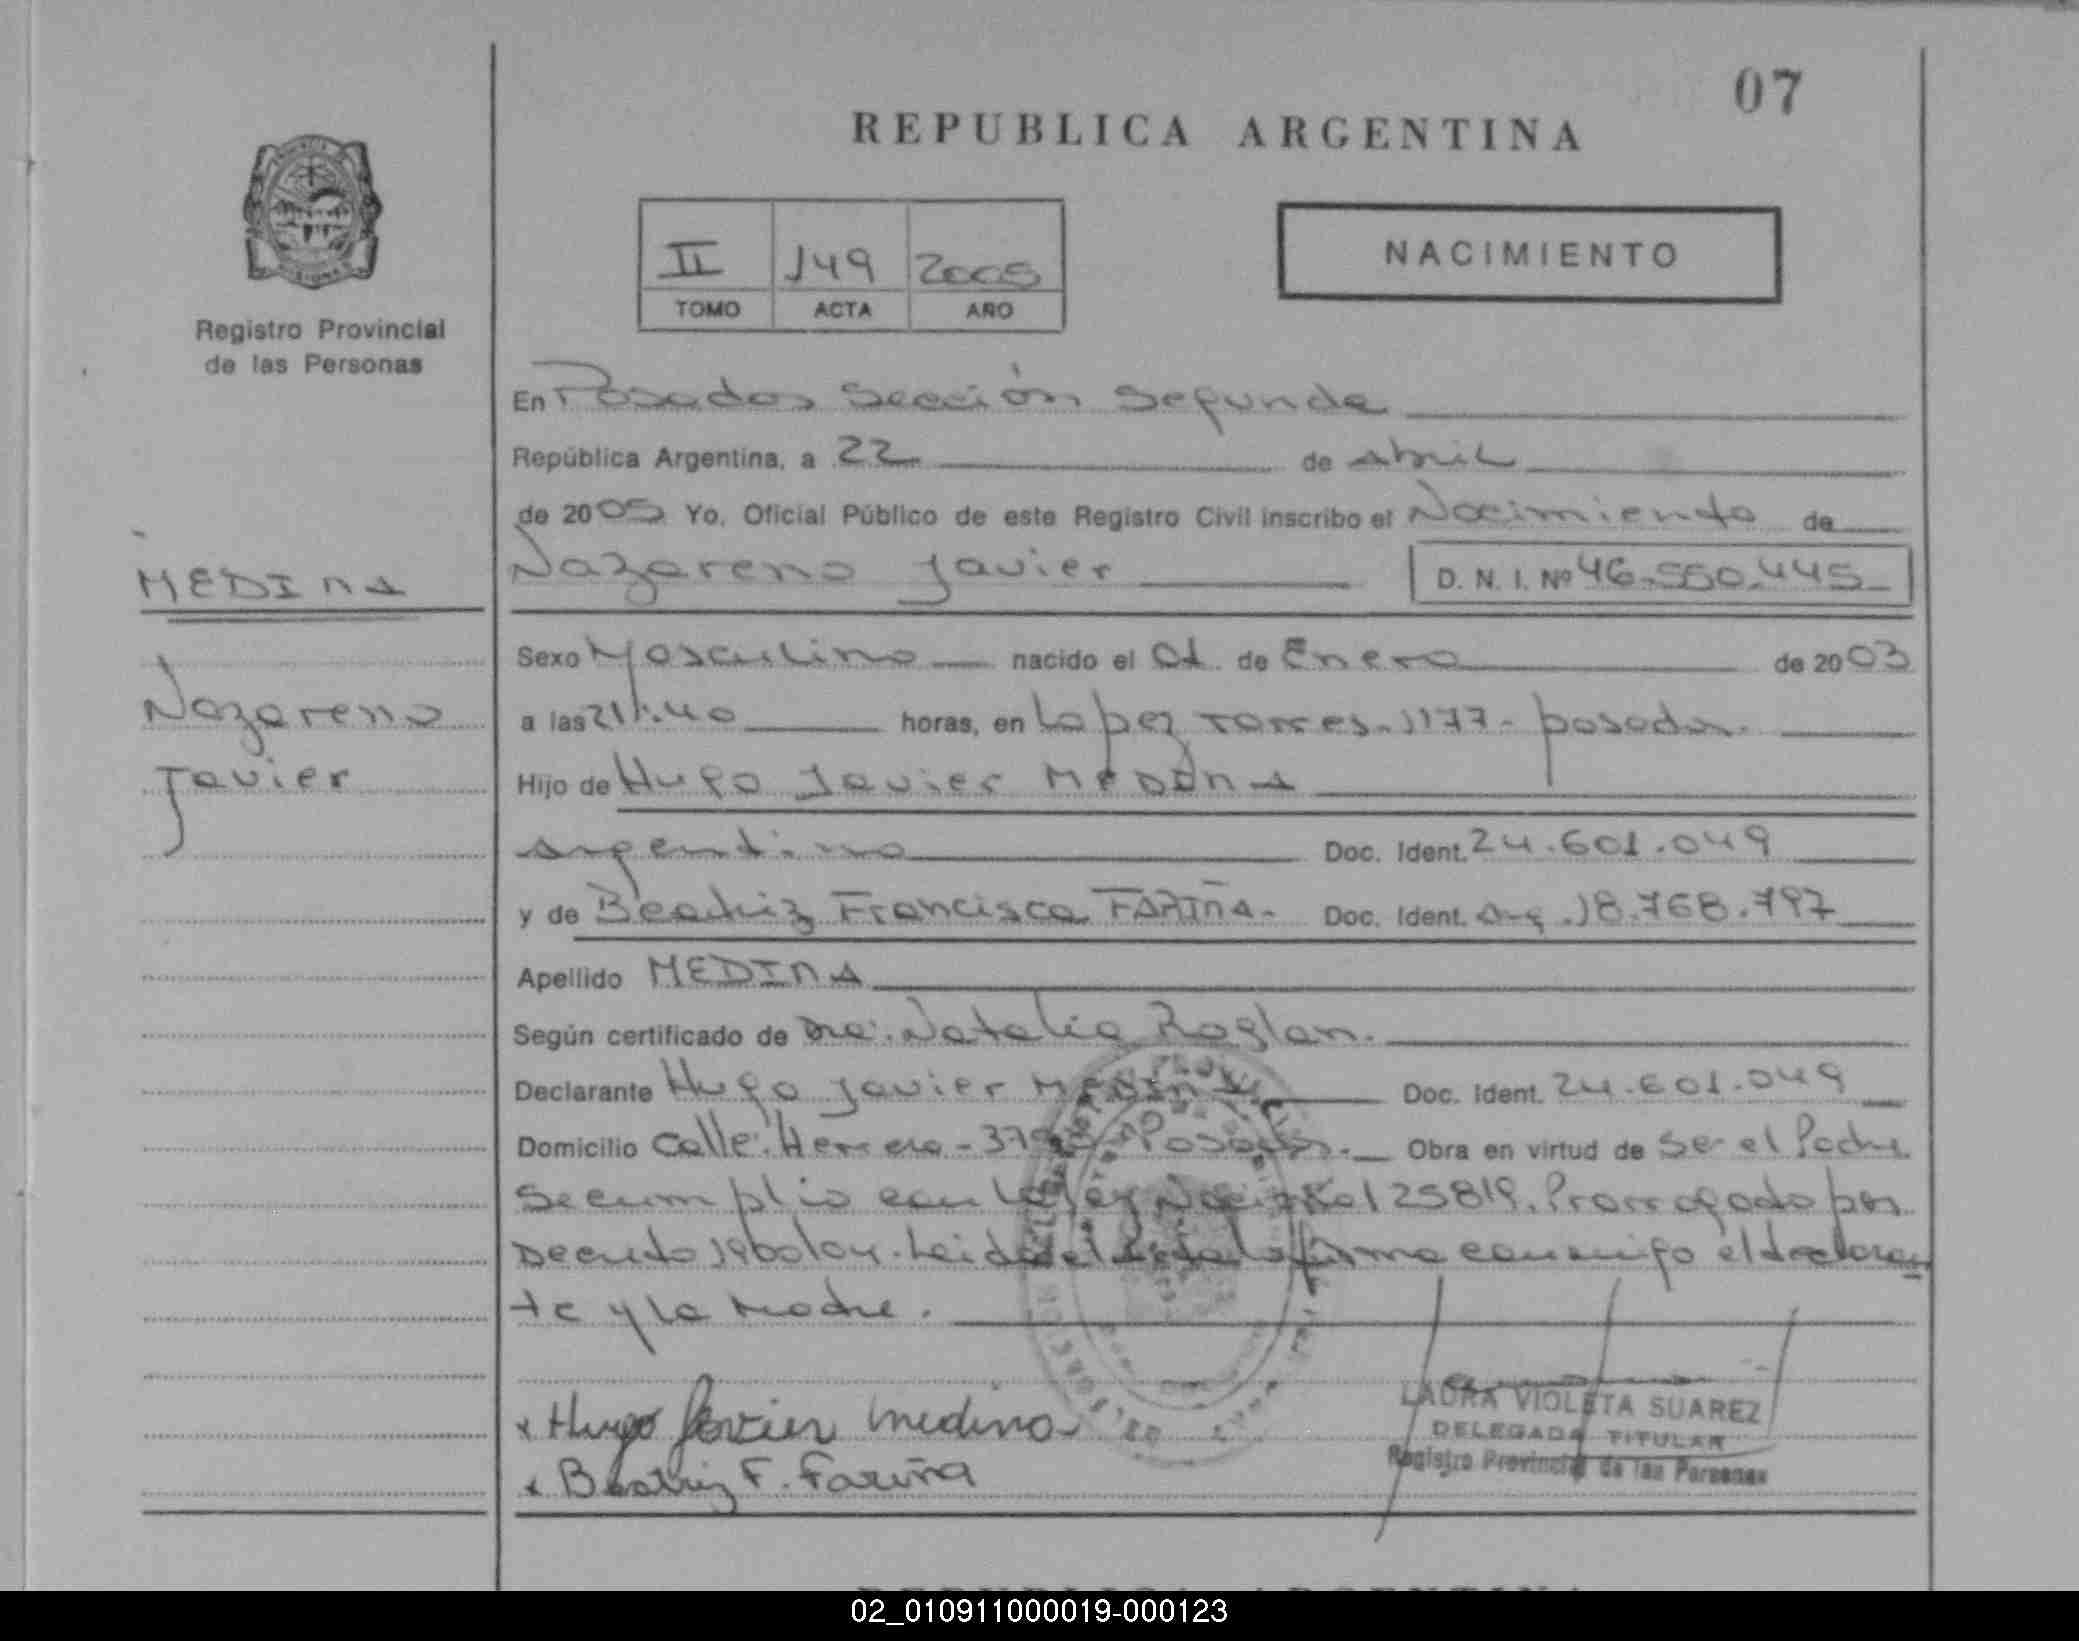 07
REPUBLICA ARGENTINA
II 149 2005
TOMO ACTA AÑO
NACIMIENTO
Registro Provincial
de las Personas
En Posadas Sección Segunda
República Argentina, a 22 de abril
de 2005 Yo, Oficial Público de este Registro Civil inscribo el Nacimiento de
Nazareno Javier D. N. I. Nº 46.550.445
MEDINA
Nazareno
Javier
Sexo Masculino nacido el 01 de Enero de 2003
a las 21h:40 horas, en Lopez Torres-1177-posadas.
Hijo de Hugo Javier MEDINA
argentino Doc. Ident. 24.601.049
y de Beatriz Francisca FARIÑA- Doc. Ident. arg.18.768.797
Apellido MEDINA
Según certificado de Dra. Natalia Roglan.
Declarante Hugo Javier MEDINA Doc. Ident. 24.601.049
Domicilio Calle: Herrera- Posadas.- Obra en virtud de Ser el Padre
Se cumplio con la Ley Nacional 25819. Prorrogado por
Decreto 1960/04. Leida el Acta la firma conmigo el declaran
te y la Madre.
x Hugo Javier Medina
x Beatriz F. Fariña
LAURA VIOLETA SUAREZ
DELEGADA TITULAR
Registro Provincial de las Personas
02_010911000019-000123